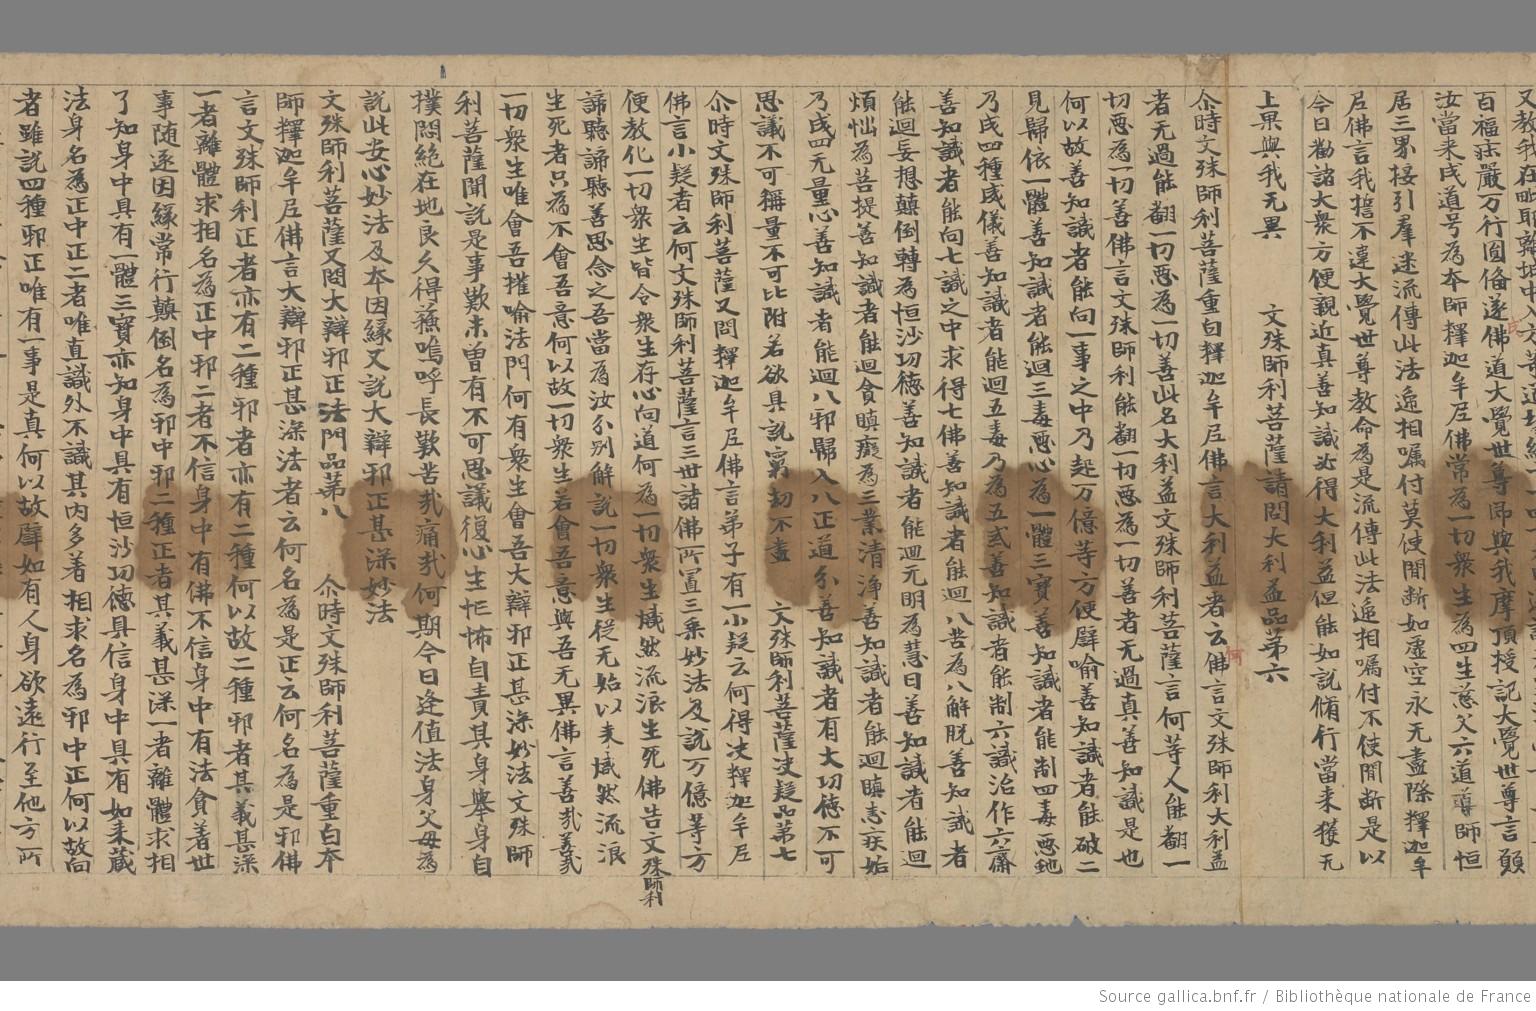 百福庄嚴万行圓俻遂佛道大覺世尊即與我摩頂授記大覺世尊言願
汝當来成道号為本師釋迦牟尼佛常為一切衆生為四生慈父六道導師恒
居三界接引羣迷流傳此法遞相嘱付莫使閒断如虚空永无盡際釋迦牟
尼佛言我擔不違大覺世尊教命為是流傳此法遞相嘱付不使閒断是以
今日勸諸大衆方便親近真善知識必得大利益但能如說脩行當来獲无
上果與我无異 文殊師利菩薩請問大利益品苐六
尒時文殊師利菩薩重白釋迦牟尼佛言大利益者云何佛言文殊師利大利益
者无過能翻一切惡為一切善此名大利益文殊師利菩薩言何等人能翻一
切惡為一切善佛言文殊師利能翻一切惡為一切善者无過真善知識是也
何以故善知識者能向一事之中乃起万億等方便譬喻善知識者能破二
見歸依一體善知識者能迴三毒惡心為一體三寶善知識者能制四毒惡虵
乃成四種威儀善知識者能迴五毒乃為五戒善知識者能制六識治作六齋
善知識者能向七識之中求得七佛善知識者能迴八苦為八解脫善知識者
能迴妄想顛倒轉為恒沙功德善知識者能迴无明為慧日善知識者能迴
煩惱為菩提善知識者能迴貪瞋癡為三業清淨善知識者能迴瞋恚疾妬
乃成四无量心善知識者能迴八邪歸入八正道分善知識者有大功德不可
思議不可稱量不可比附若欲具說窮劫不盡 文殊師利菩薩决疑品苐七
尒時文殊師利菩薩又問釋迦牟尼佛言弟子有一小疑云何得决釋迦牟尼
佛言小疑者云何文殊師利菩薩言三世諸佛所置三乘妙法及說万億等方
便教化一切衆生皆令衆生存心向道何為一切衆生熾然流浪生死佛告文殊師利
諦聽諦聽善思念之吾當為汝分別解說一切衆生從无始以来熾然流浪
生死者只為不會吾意何以故一切衆生若會吾意與吾无異佛言善哉善哉
一切衆生唯會吾權喻法門何有衆生會吾大辯邪正甚深妙法文殊師
利菩薩聞說是事歎未曾有不可思議復心生恠怖自責其身舉身自
撲悶絕在地良久得蘓嗚呼長歎苦哉痛哉何期今日逢值法身父母為
說此安心妙法及本因緣又說大辯邪正甚深妙法
文殊師利菩薩又問大辯邪正法門品苐八 尒時文殊師利菩薩重白本
師釋迦牟尼佛言大辯邪正甚深法者云何名為是正云何名為是邪佛
言文殊師利正者亦有二種邪者亦有二種何以故二種邪者其義甚深
一者離體求相名為正中邪二者不信身中有佛不信身中有法貪著世
事随逐因緣常行顛倒名為邪中邪二種正者其義甚深一者離體求相
了知身中具有一體三寶亦知身中具有恒沙功德具信身中具有如来藏
法身名為正中正二者唯直識外不識其内多著相求名為邪中正何以故向
者雖說四種邪正唯有一事是真何以故譬如有人身欲遠行至他方所
Source gallica.bnf.fr / Bibliothèque nationale de France